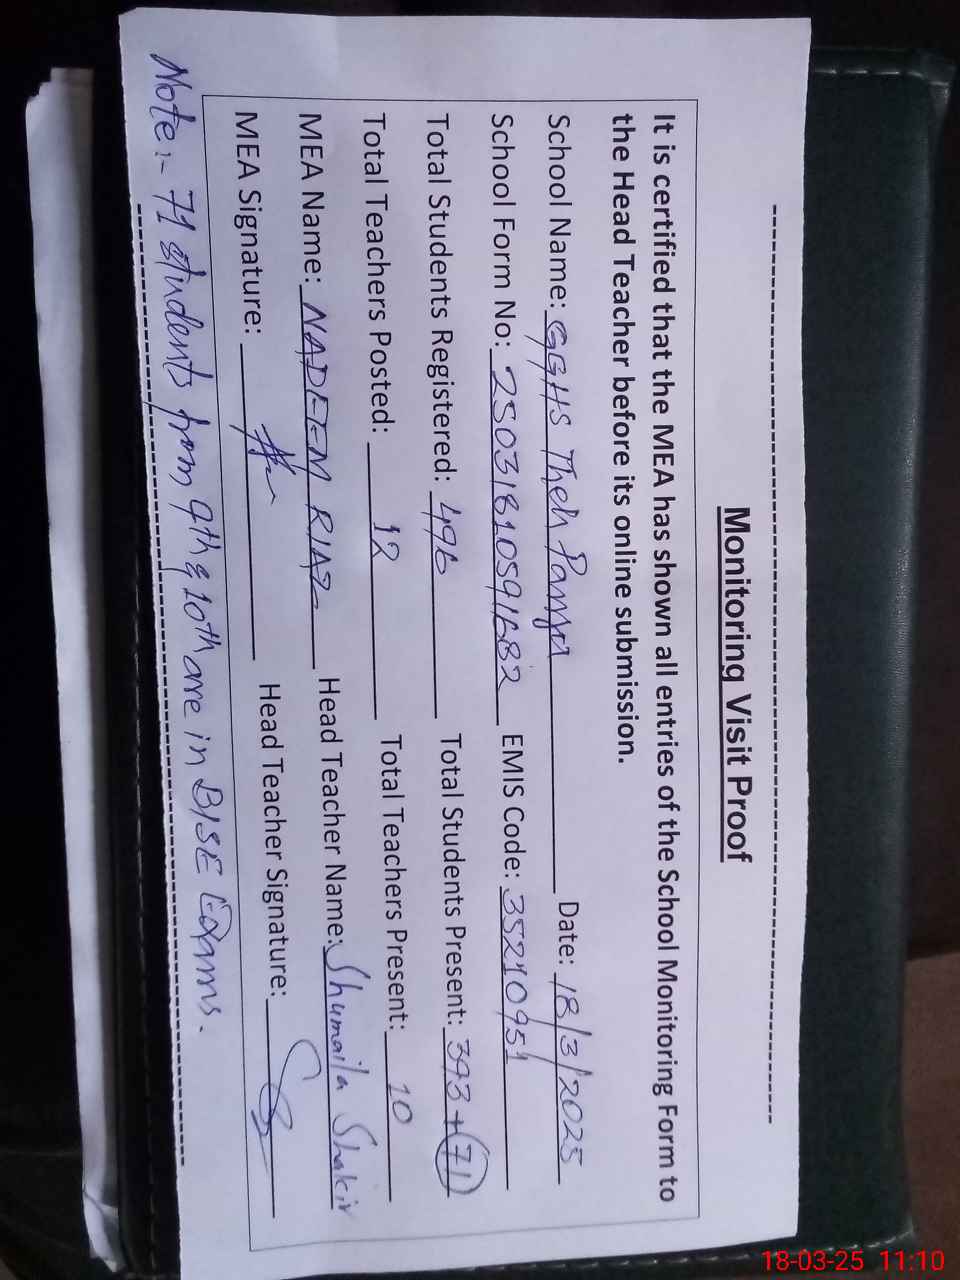 Monitoring Visit Proof
It is certified that the MEA has shown all entries of the School Monitoring Form to
the Head Teacher before its online submission.
School Name: GGHS Theh Panju Date: 18/3/2025
School Form No: 25031810591682 EMIS Code: 35210951
Total Students Registered: 496 Total Students Present: 393 + 71
Total Teachers Posted: 12 Total Teachers Present: 10
MEA Name: NADEEM RIAZ Head Teacher Name: Shumaila Shakir
MEA Signature: Head Teacher Signature:
Note:- 71 students from 9th & 10th are in BISE Exams.
18-03-25 11:10